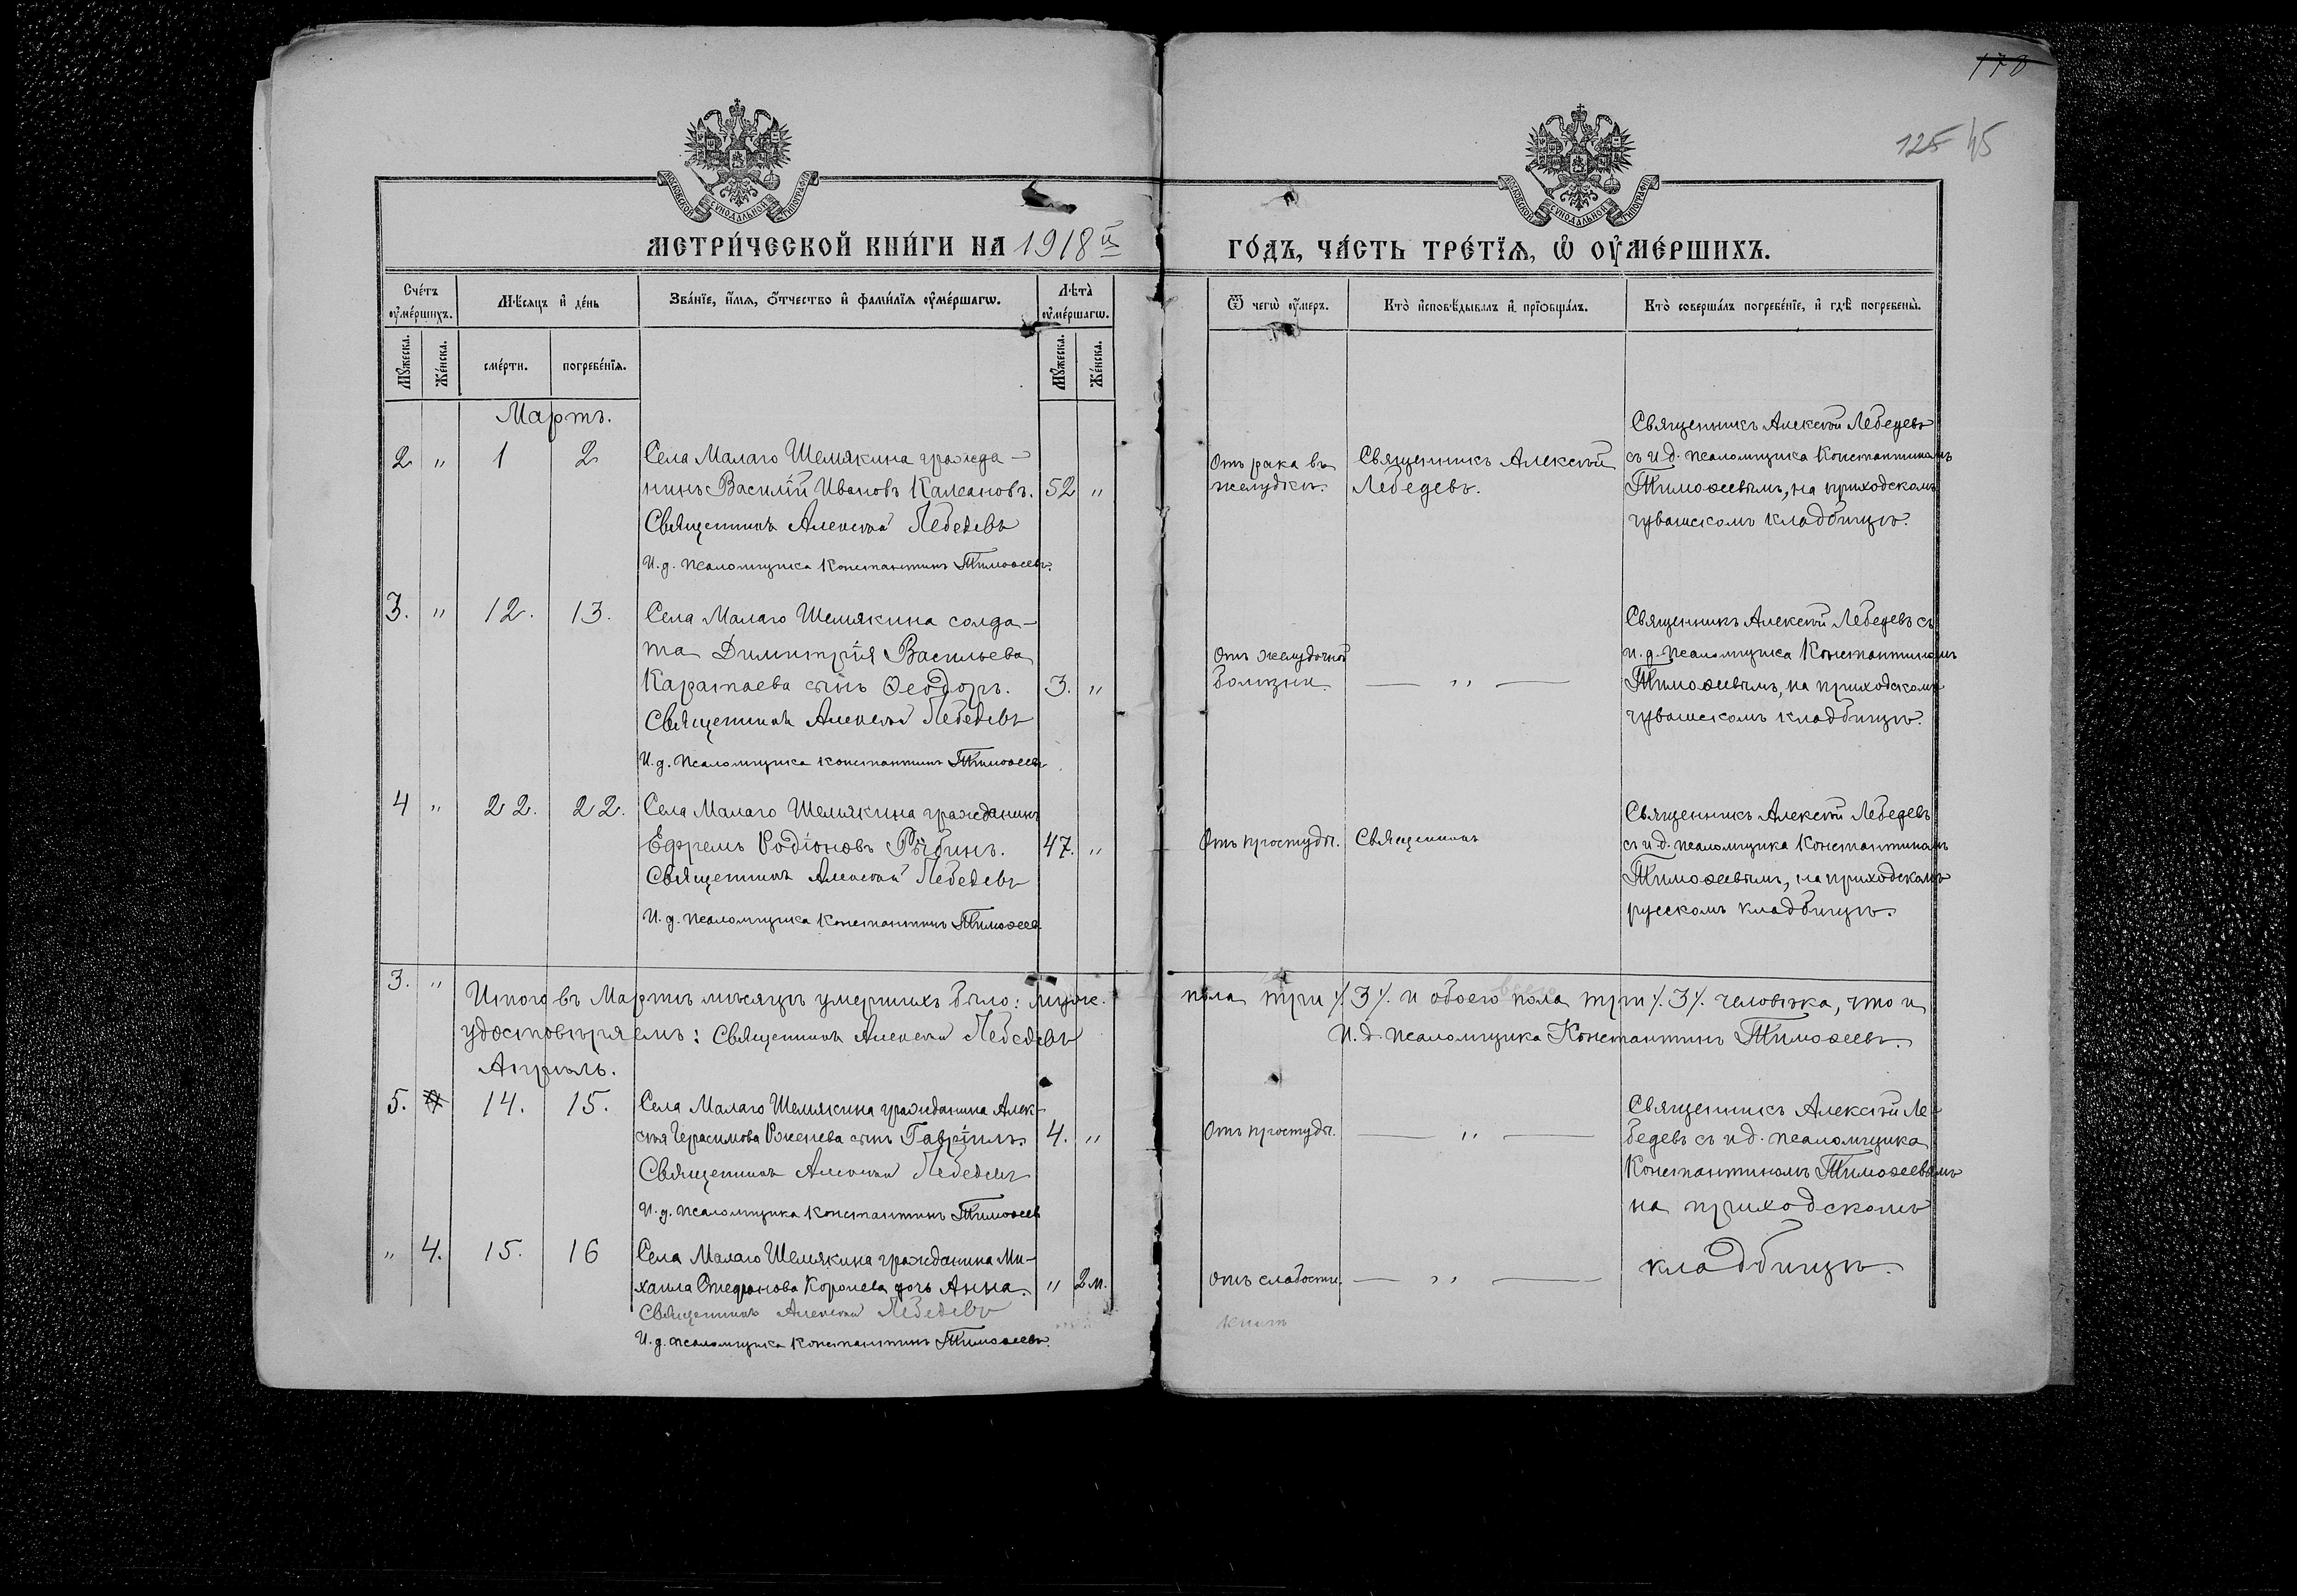 178
125 45
МОСКОВСКОЙ СѴНОДАЛЬНОЙ ТИПОГРАФІИ
МОСКОВСКОЙ СѴНОДАЛЬНОЙ ТИПОГРАФІИ
МЕТРИ́ЧЕСКОЙ КНИ́ГИ НА 1918й
ГО́ДЪ, ЧА́СТЬ ТРЕ́ТЇѦ, Ѡ҆ ОУ҆МЕ́РШИХЪ.
Сче́тъ оу҆ме́ршихъ.
Мѣ́сяцъ и҆ де́нь
Зва́нїе, и҆́мѧ, ѻ҆́тчество и҆ фами́лїѧ оу҆ме́ршагѡ.
Лѣта̀ оу҆ме́ршагѡ.
Ѿ чегѡ̀ оу҆́меръ.
Кто̀ и҆сповѣ́дывалъ и҆ прїѡбща́лъ.
Кто̀ соверша́лъ погребе́нїе, и҆ гдѣ̀ погребены̀.
Мꙋ́жеска.
Же́нска.
сме́рти.
погребе́нїѧ.
Мꙋ́жеска.
Же́нска.
Мартъ.
2 " 1 2 Села Малаго Шемякина гражда-
нинъ Василій Ивановъ Калсановъ. 52 "
Священникъ Алексѣй Лебедевъ
И. д. псаломщика Константинъ Тимоѳеевъ.
Отъ рака въ
желудкѣ.
Священникъ Алексѣй
Лебедевъ.
Священникъ Алексѣй Лебедевъ
съ и. д. псаломщика Константиномъ
Тимоѳеевымъ, на приходскомъ
чувашскомъ кладбищѣ.
3. " 12. 13. Села Малаго Шемякина солда-
та Димитрія Васильева
Каратаева сынъ Ѳеодоръ. 3. "
Священникъ Алексѣй Лебедевъ
И. д. псаломщика Константинъ Тимоѳеевъ
Отъ желудочной
болѣзни.
— " —
Священникъ Алексѣй Лебедевъ съ
и. д. псаломщика Константиномъ
Тимоѳеевымъ, на приходскомъ
чувашскомъ кладбищѣ.
4 " 22. 22. Села Малаго Шемякина гражданинъ
Ефремъ Родіоновъ Рябинъ. 47. "
Священникъ Алексѣй Лебедевъ
И. д. псаломщика Константинъ Тимоѳеев
Отъ простуды.
Священникъ
Священникъ Алексѣй Лебедевъ
съ и. д. псаломщика Константиномъ
Тимоѳеевымъ, на приходскомъ
русскомъ кладбищѣ.
3. "
Итого въ Мартѣ мѣсяцѣ умершихъ было: муж. пола три /. 3 /. и обоего пола три /. 3 /. человѣка, что и
удостовѣряемъ: Священникъ Алексѣй Лебедевъ И. д. псаломщика Константинъ Тимоѳеевъ.
Апрѣль.
5. 14. 15. Села Малаго Шемякина гражданина Алек-
сѣя Герасимова сынъ Гавріилъ. 4. "
Священникъ Алексѣй Лебедевъ
И. д. псаломщика Константинъ Тимоѳеев
Отъ простуды.
— " —
Священникъ Алексѣй Ле-
бедевъ съ и д. псаломщика
Константиномъ Тимоѳеевымъ
на приходскомъ
кладбищѣ.
" 4. 15. 16 Села Малаго Шемякина гражданина Ми-
хаила Стефанова Королева дочь Анна. " 2 м.
Священникъ Алексѣй Лебедевъ
И. д. псаломщика Константинъ Тимоѳеевъ.
отъ слабости.
— " —